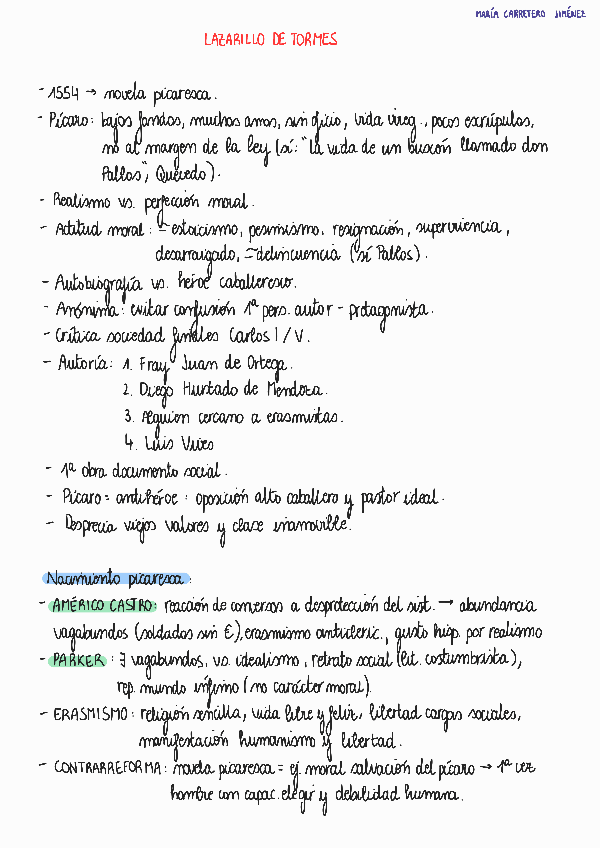 MARÍA CARRETERO JIMÉNEZ
LAZARILLO DE TORMES
- 1554 → novela picaresca.
- Pícaro: bajos fondos, muchos amos, sin oficio, vida irreg., pocos escrúpulos,
no al margen de la ley (sí: "la vida de un buscón llamado don
Pablos", Quevedo).
- Realismo vs. perfección moral.
- Actitud moral: = estoicismo, pesimismo, resignación, supervivencia,
desarraigado, = delincuencia (sí Pablos).
- Autobiografía vs. héroe caballeresco.
- Anónima: evitar confusión 1ª pers. autor - protagonista.
- Crítica sociedad finales Carlos I / V.
- Autoría: 1. Fray Juan de Ortega.
2. Diego Hurtado de Mendoza.
3. Alguien cercano a erasmistas.
4. Luis Vives
- 1ª obra documento social.
- Pícaro = antihéroe: oposición alto caballero y pastor ideal.
- Desprecia viejos valores y clase inamovible.
Nacimiento picaresca:
- AMÉRICO CASTRO: reacción de conversos a desprotección del sist. → abundancia
vagabundos (soldados sin €), erasmismo anticleric., gusto hisp. por realismo
- PARKER: ∃ vagabundos, vs. idealismo, retrato social (lit. costumbrista),
rep. mundo ínfimo (no carácter moral).
- ERASMISMO: religión sencilla, vida libre y feliz, libertad cargas sociales,
manifestación humanismo y libertad.
- CONTRARREFORMA: novela picaresca = ej. moral salvación del pícaro → 1ª vez
hombre con capac. elegir y debilidad humana.